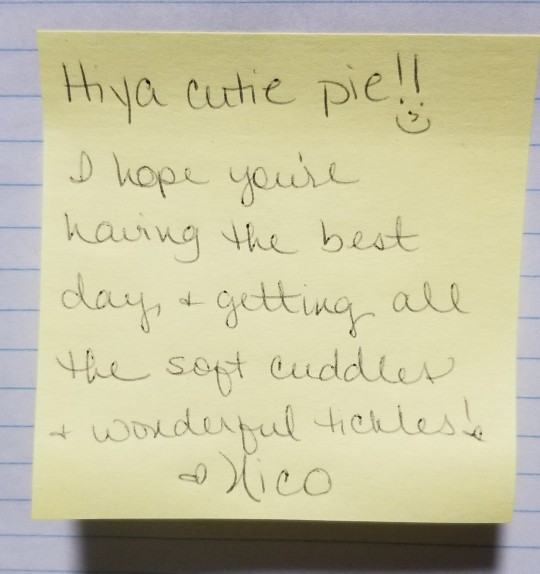 Hiya cutie pie!!
I hope you're
having the best
day, + getting all
the soft cuddles
+ wonderful tickles!
Nico